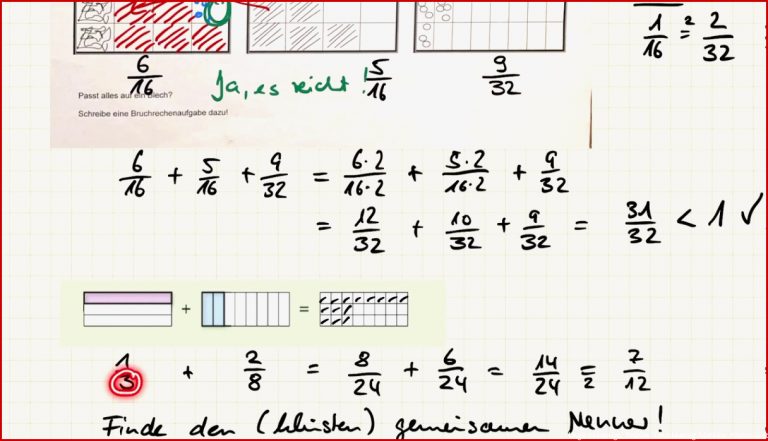 1/16 =² 2/32
6/16 5/16 9/32
Ja, es reicht!
Passt alles auf ein Blech?
Schreibe eine Bruchrechenaufgabe dazu!
6/16 + 5/16 + 9/32 = 6·2/16·2 + 5·2/16·2 + 9/32
= 12/32 + 10/32 + 9/32 = 31/32 < 1 ✓
+ =
1/3 + 2/8 = 8/24 + 6/24 = 14/24 =₂ 7/12
Finde den (kleinsten) gemeinsamen Nenner!